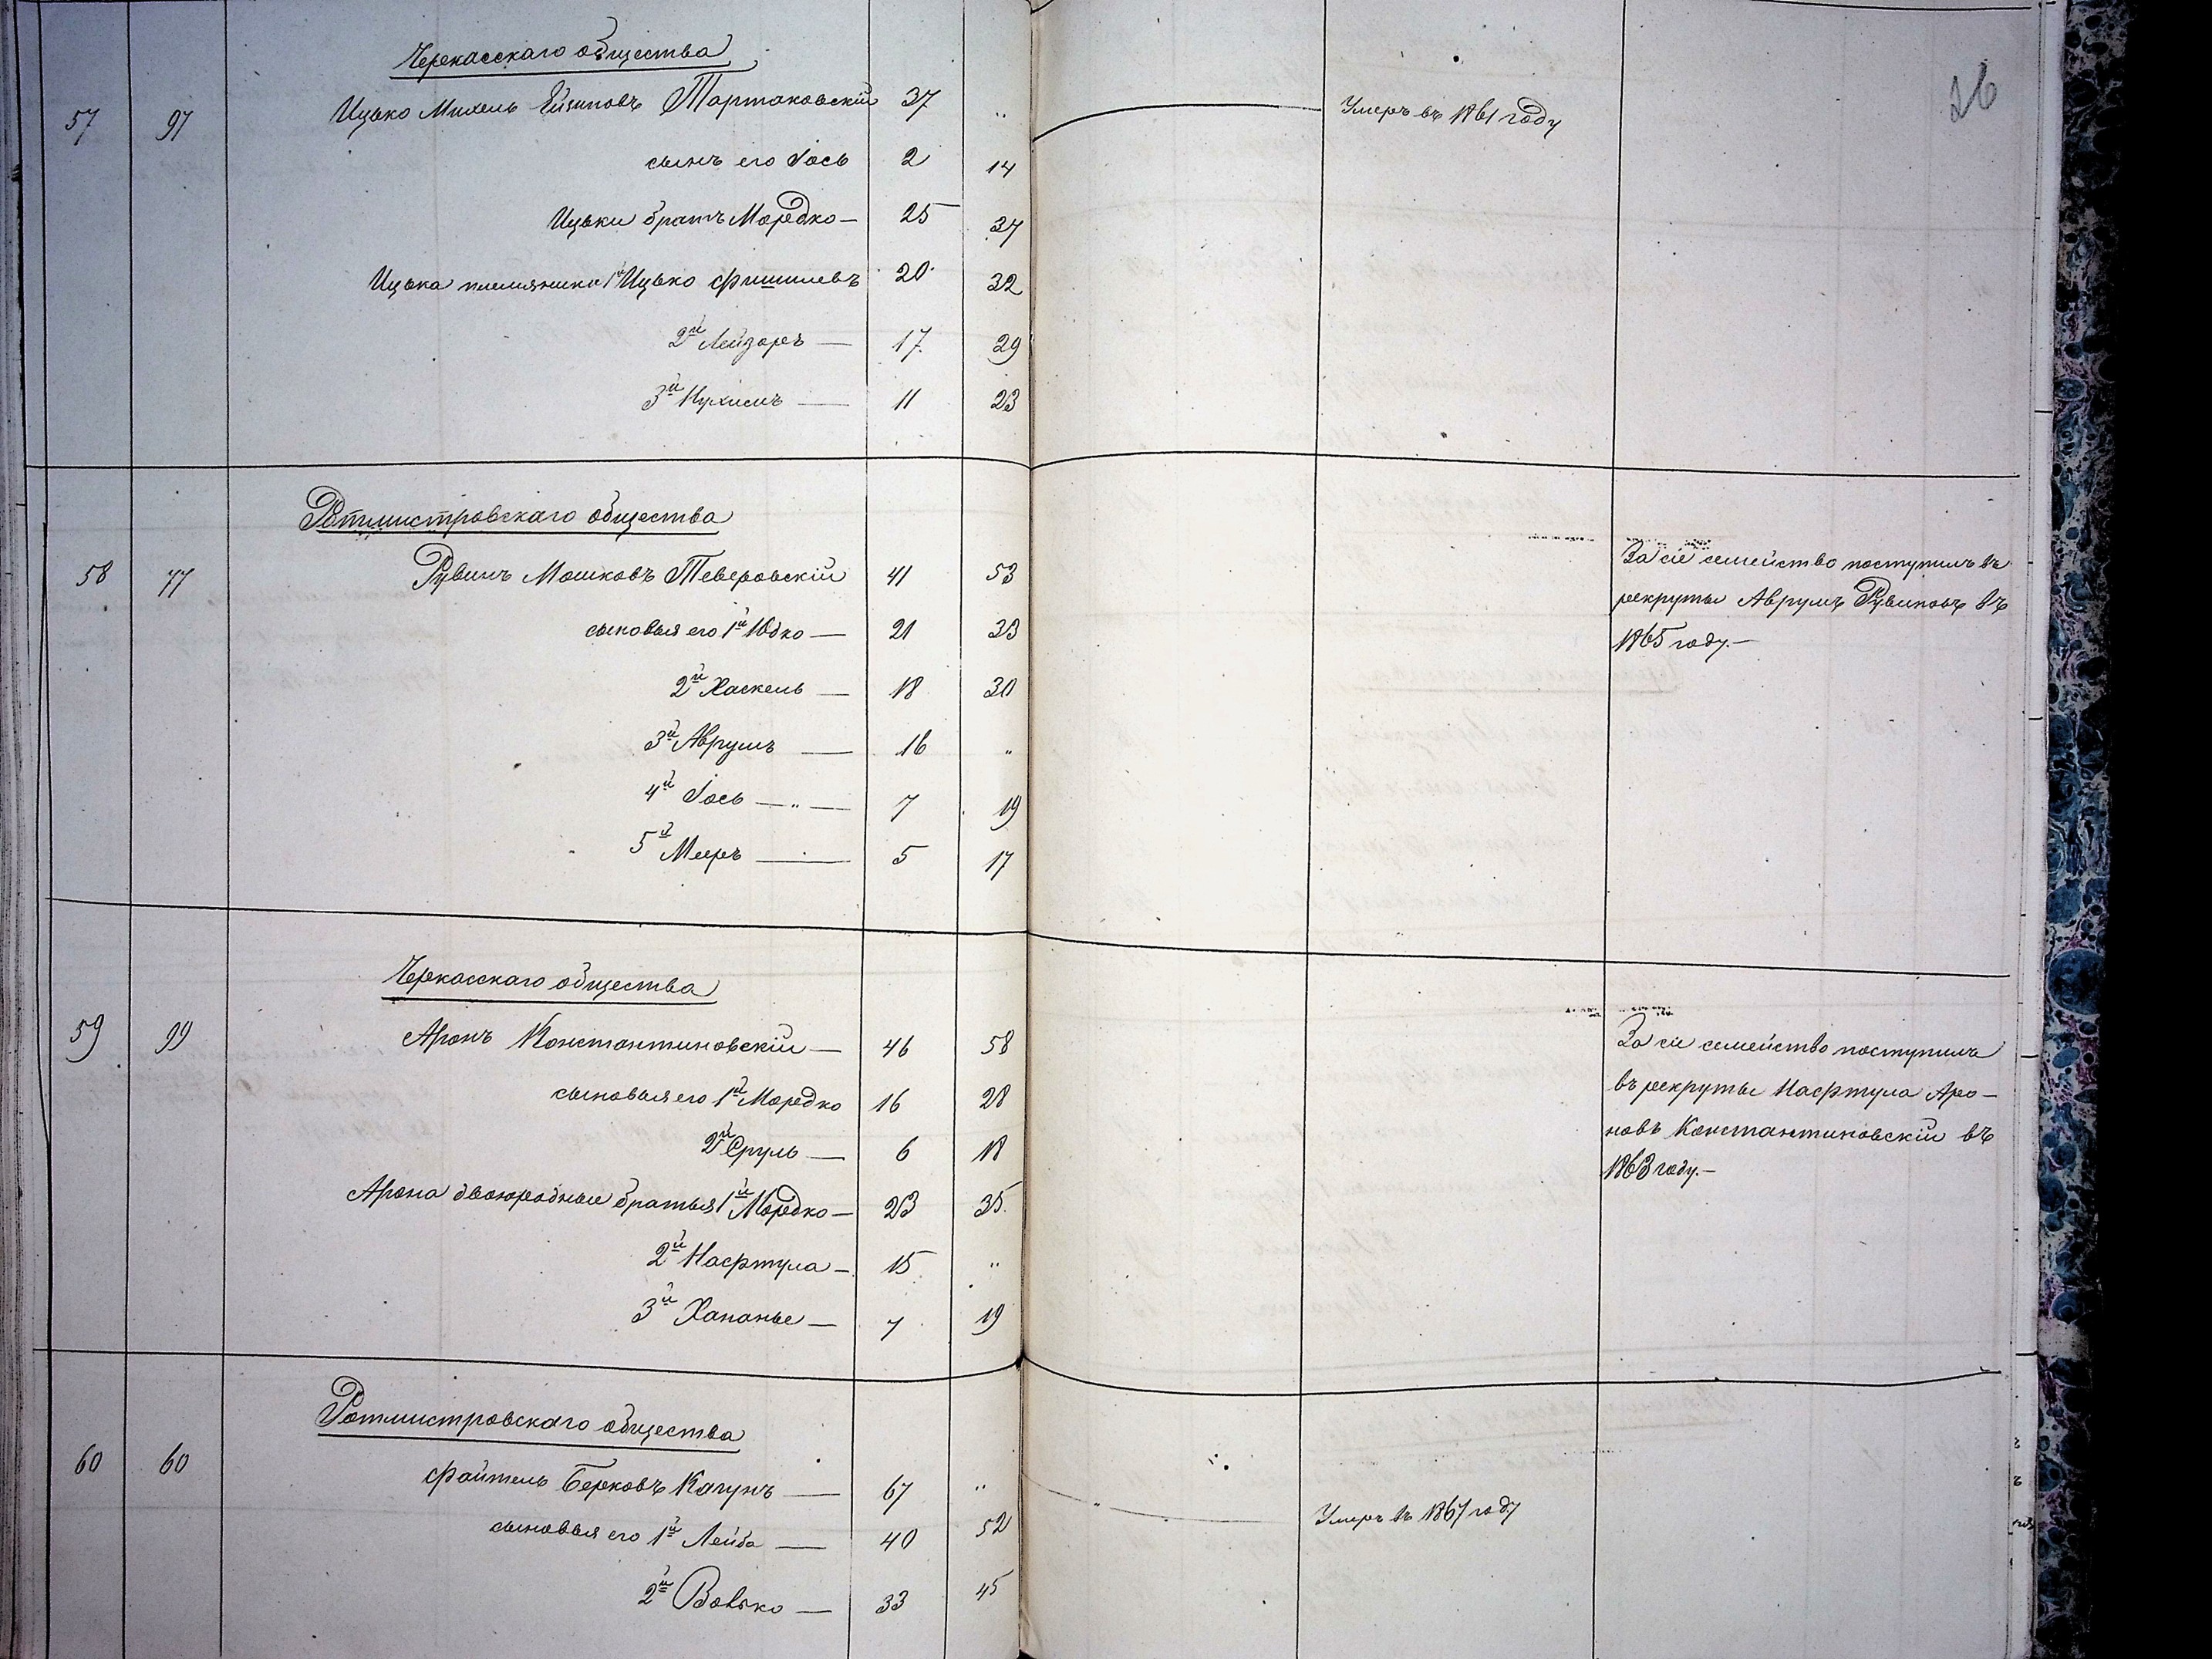 26
Черкасскаго общества
57 97 Ицько Михель Ейзиковъ Тартаковскій 37 " Умеръ въ 1861 году
сынъ его Іось 2 14
Ицьки братъ Мордко — 25 37
Ицька племянники 1й Ицько Фишилевъ 20 32
2й Лейзоръ — 17 29
3й Нухимъ — 11 23
Ротмистровскаго общества
58 77 Рувинъ Мошковъ Теверовскій 41 53
сыновья его 1й Юдко — 21 33
2й Хаскель — 18 30
3й Аврумъ — 16 "
4й Іось — " — 7 19
5й Меръ — 5 17
За сіе семейство поступилъ въ
рекруты Аврумъ Рувиновъ въ
1865 году. —
Черкасскаго общества
59 99 Аронъ Константиновскій — 46 58
сыновья его 1й Мордко 16 28
2й Сруль — 6 18
Арона двоюродные братья 1й Мордко — 23 35
2й Нафтула — 15 "
3й Хананье — 7 19
За сіе семейство поступилъ
въ рекруты Нафтула Аро-
новъ Константиновскій въ
1863 году. —
Ротмистровскаго общества
60 60 Файтель Берковъ Кагунъ — 67 " Умеръ въ 1867 году
сыновья его 1й Лейба — 40 52
2й Вовко — 33 45